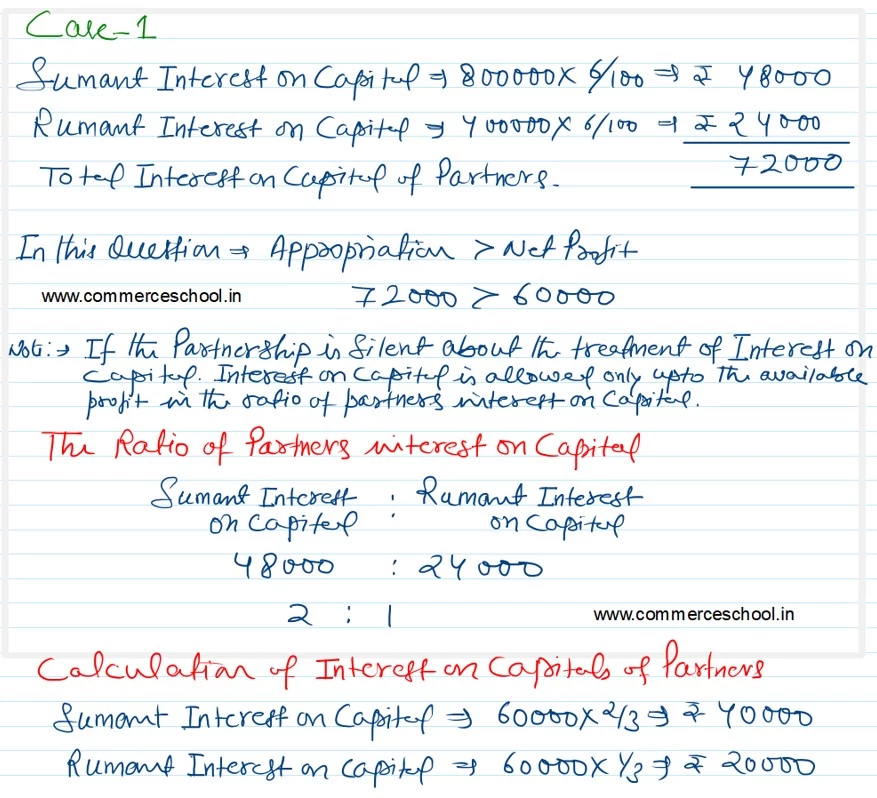 Case-1
Sumant Interest on Capital ⇒ 800000 x 6/100 ⇒ ₹ 48000
Rumant Interest on Capital ⇒ 400000 x 6/100 ⇒ ₹ 24000
Total Interest on Capital of Partners. 72000
In this Question ⇒ Appropriation > Net Profit
www.commerceschool.in 72000 > 60000
Note:→ If the Partnership is Silent about the treatment of Interest on
Capital. Interest on Capital is allowed only upto the available
profit in the ratio of partners interest on Capital.
The Ratio of Partners interest on Capital
Sumant Interest : Rumant Interest
on Capital on Capital
48000 : 24000
2 : 1 www.commerceschool.in
Calculation of Interest on Capitals of Partners
Sumant Interest on Capital ⇒ 60000 x 2/3 ⇒ ₹ 40000
Rumant Interest on Capital ⇒ 60000 x 1/3 ⇒ ₹ 20000